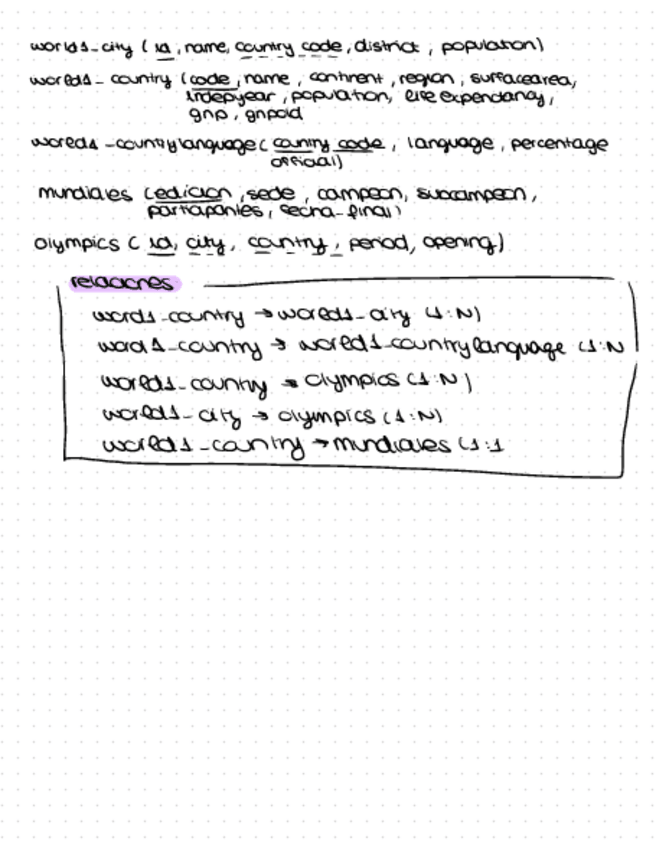 world1_city (id, name, country code, district, population)
world1_country (code, name, continent, region, surfacearea,
indepyear, population, life expendancy,
gnp, gnpold
world1_countrylanguage (country code, language, percentage
official)
mundiales (edicion, sede, campeon, subcampeon,
participantes, fecha_final)
olympics (id, city, country, period, opening)
relaciones
world1_country → world1_city (1:N)
world1_country → world1_countrylanguage (1:N
world1_country → olympics (1:N)
world1_city → olympics (1:N)
world1_country → mundiales (1:1